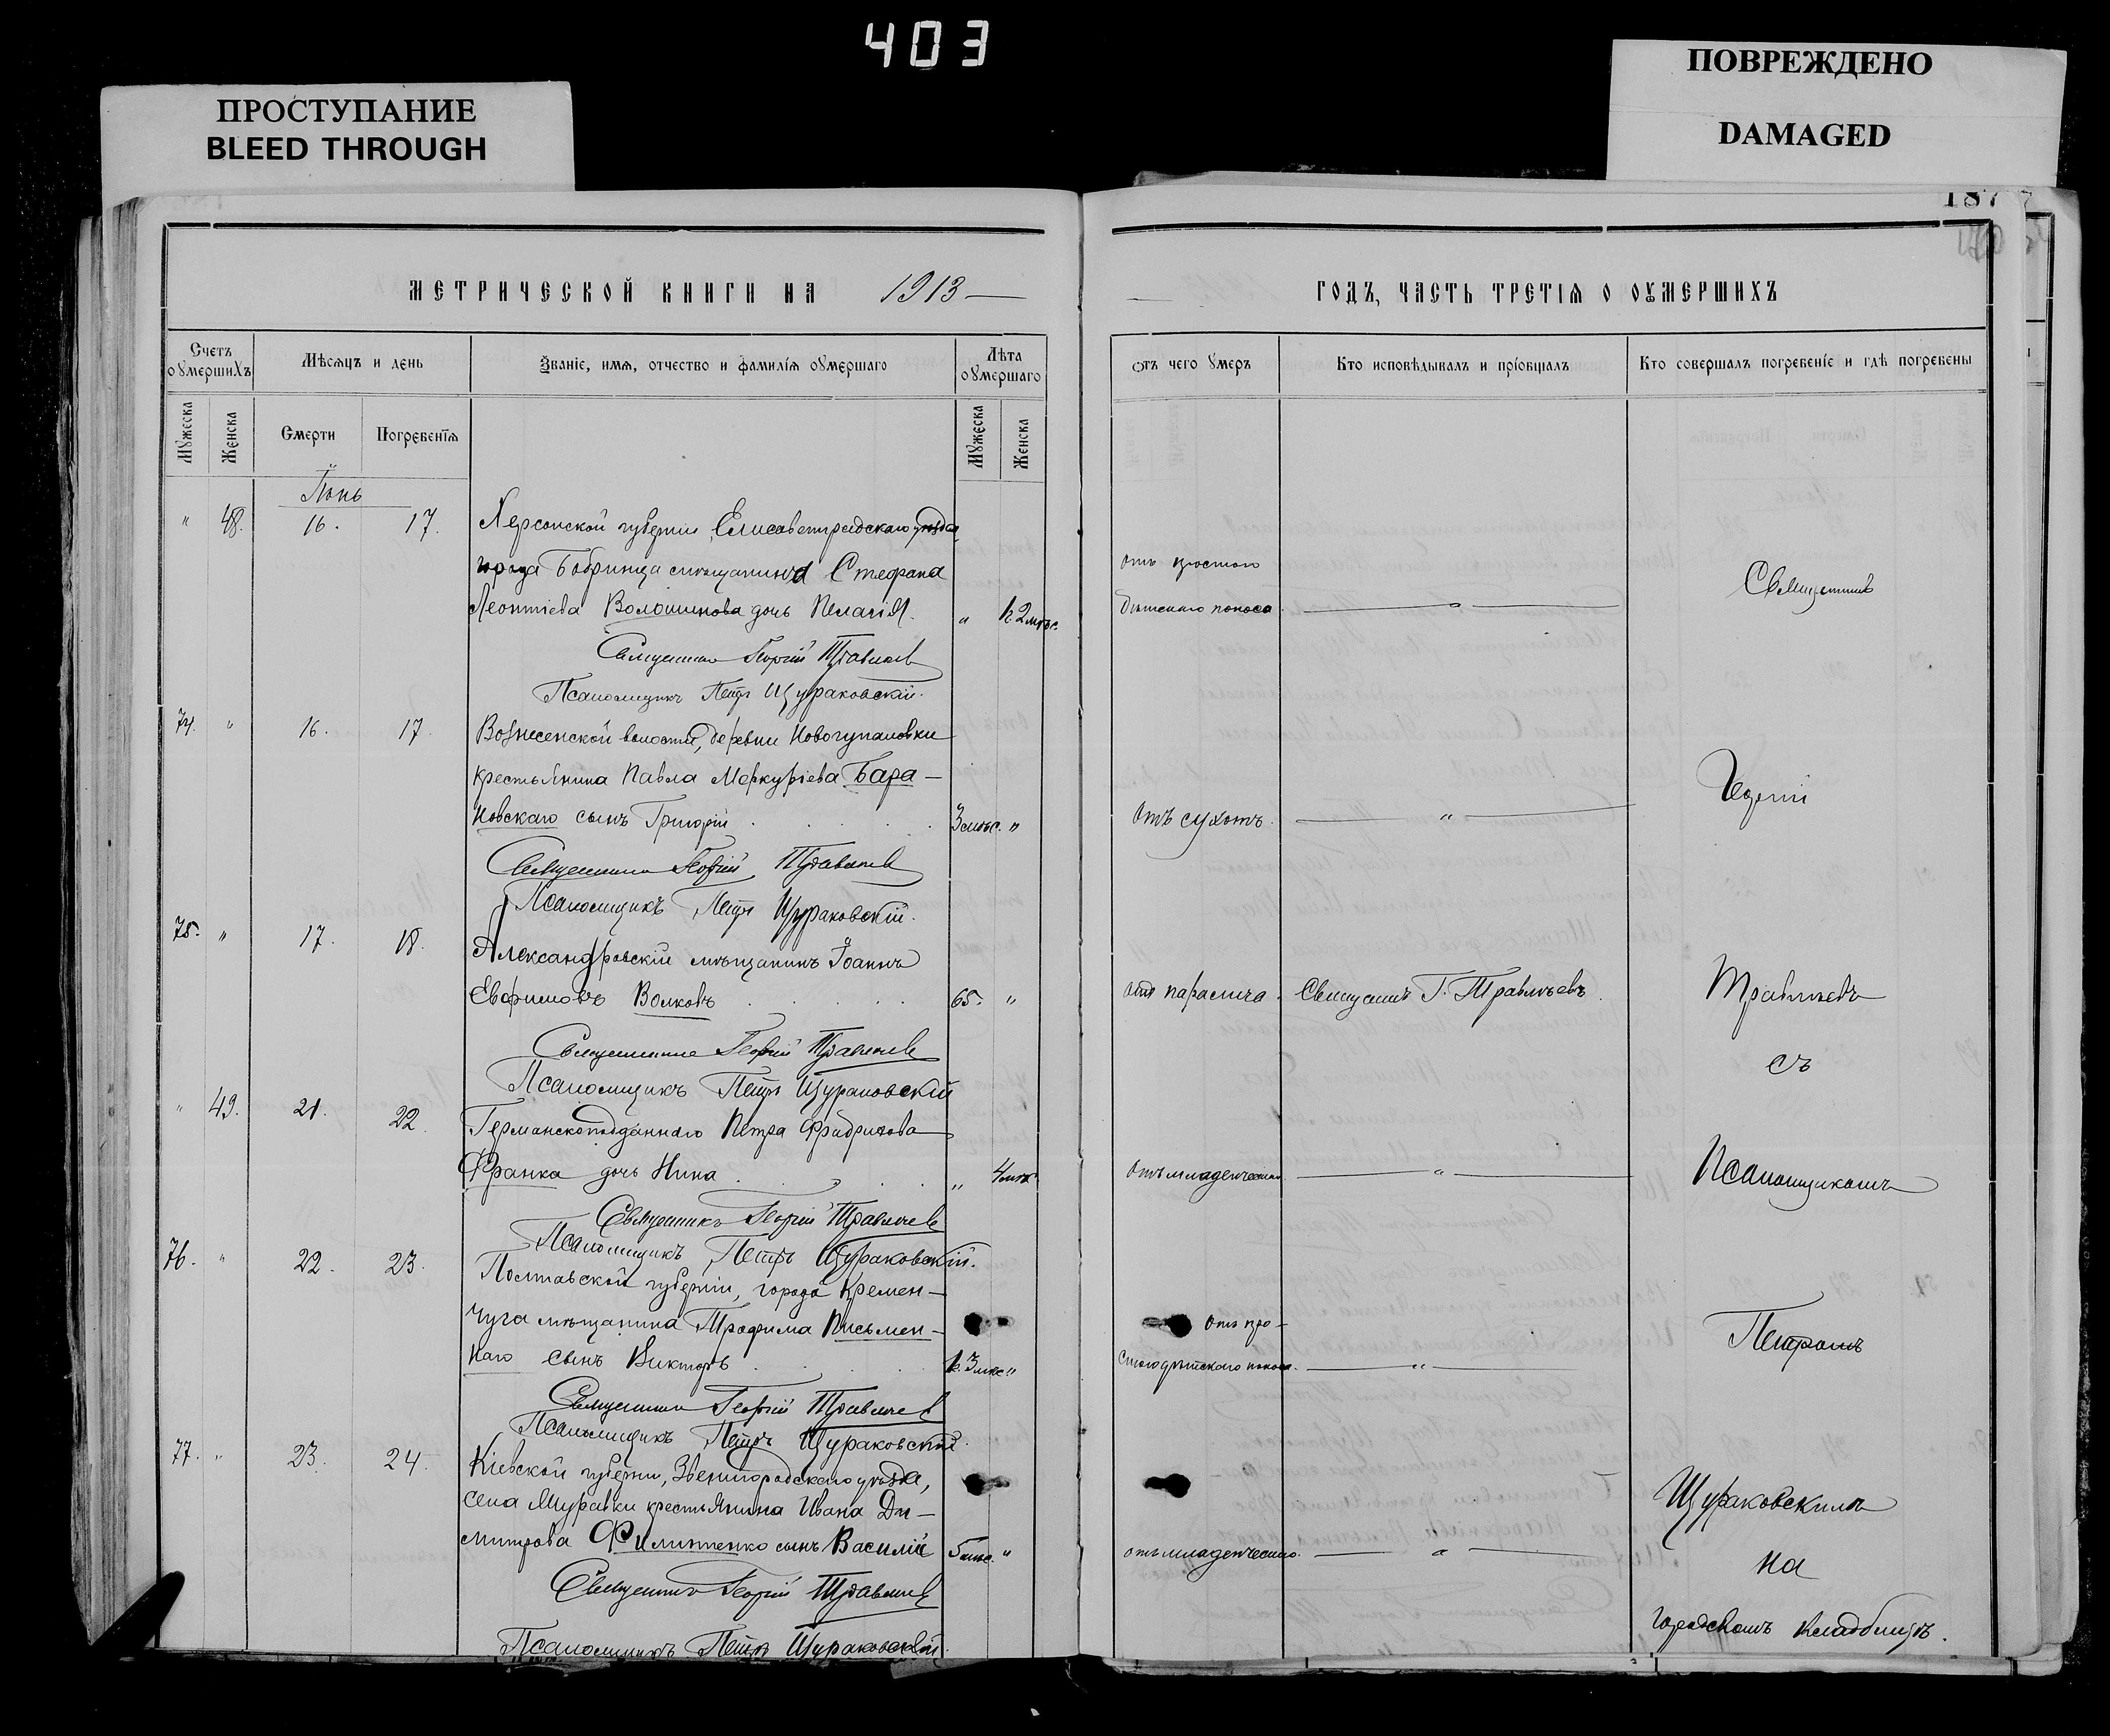 403
ПРОСТУПАНИЕ
BLEED THROUGH
ПОВРЕЖДЕНО
DAMAGED
187
МЕТРИЧЕСКОЙ КНИГИ НА 1913
ГОДЪ, ЧАСТЬ ТРЕТІЯ О ОУМЕРШИХЪ
Счетъ оумершихъ
Мѣсяцъ и день
Званіе, имя, отчество и фамилія оумершаго
Лѣта оумершаго
Отъ чего умеръ
Кто исповѣдывалъ и пріобщалъ
Кто совершалъ погребеніе и гдѣ погребены
Мужеска
Женска
Смерти
Погребенія
Мужеска
Женска
Іюнь
" 48. 16. 17. Херсонской губерніи Елисаветградскаго уѣзда
города Бобринца мѣщанина Стефана
отъ простого
Леонтіева Волошинова дочь Пелагія. " 2 мѣс.
дѣтскаго поноса
Священникъ
Священникъ Георгій Травлѣев
Псаломщикъ Петръ Щураковскій.
74. " 16. 17. Вознесенской волости, деревни Новогупаловки
крестьянина Павла Меркуріева Бара-
Георгій
новскаго сынъ Григорій 3 мѣс. "
отъ сухотъ. "
Священникъ Георгій Травлѣев
Псаломщикъ Петръ Щураковскій.
75. " 17. 18. Александровскій мѣщанинъ Іоаннъ
Евфимовъ Волковъ 65. "
отъ паралича. Священникъ Г. Травлѣевъ.
Травлѣевъ
Священникъ Георгій Травлѣев
съ
Псаломщикъ Петръ Щураковскій
" 49. 21. 22. Германскоподданнаго Петра Фридрихова
Франка дочь Нина " 4 мѣс.
отъ младенческой. "
Псаломщикомъ
Священникъ Георгій Травлѣев
Псаломщикъ Петръ Щураковскій.
76. " 22. 23. Полтавской губерніи, города Кремен-
чуга мѣщанина Трофима Письмен-
отъ про-
Петромъ
наго сынъ Викторъ 3 мѣс. "
стого дѣтскаго поноса. "
Священникъ Георгій Травлѣев
Псаломщикъ Петръ Щураковскій.
77. " 23. 24. Кіевской губерніи, Звенигородскаго уѣзда,
села Муравки крестьянина Ивана Ди-
Щураковскимъ
митрова Филипенко сынъ Василій 5 мѣс. "
отъ младенческой.
на
Священникъ Георгій Травлѣев
Псаломщикъ Петръ Щураковскій.
городскомъ кладбищѣ.